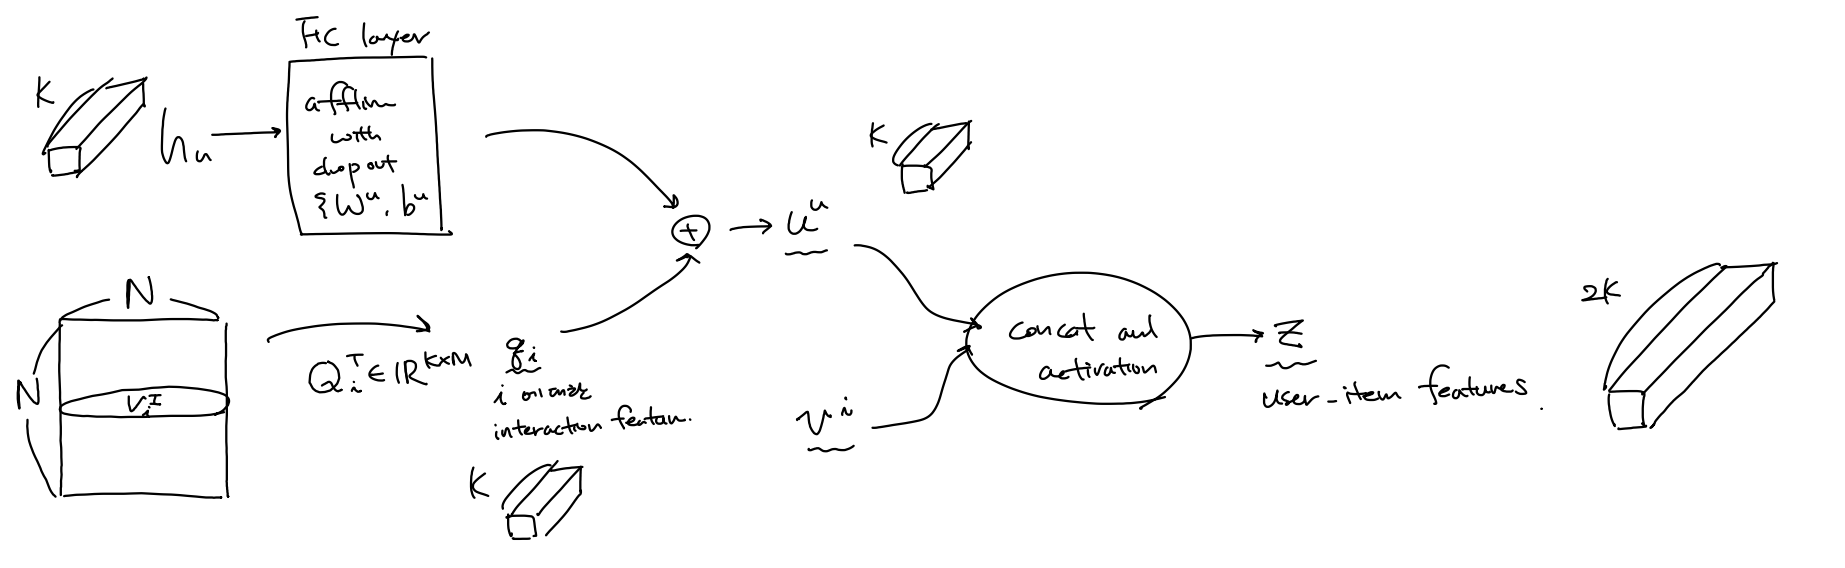 FC layer
K
hu
affin
with
dropout
{Wᵘ, bᵘ
K
⊕
uᵘ
N
N
Vᵢᴵ
Qᵢᵀ ∈ ℝᴷˣᴹ
qᵢ
i
interaction featur.
K
vⁱ
concat and
activation
z
user-item features.
2K